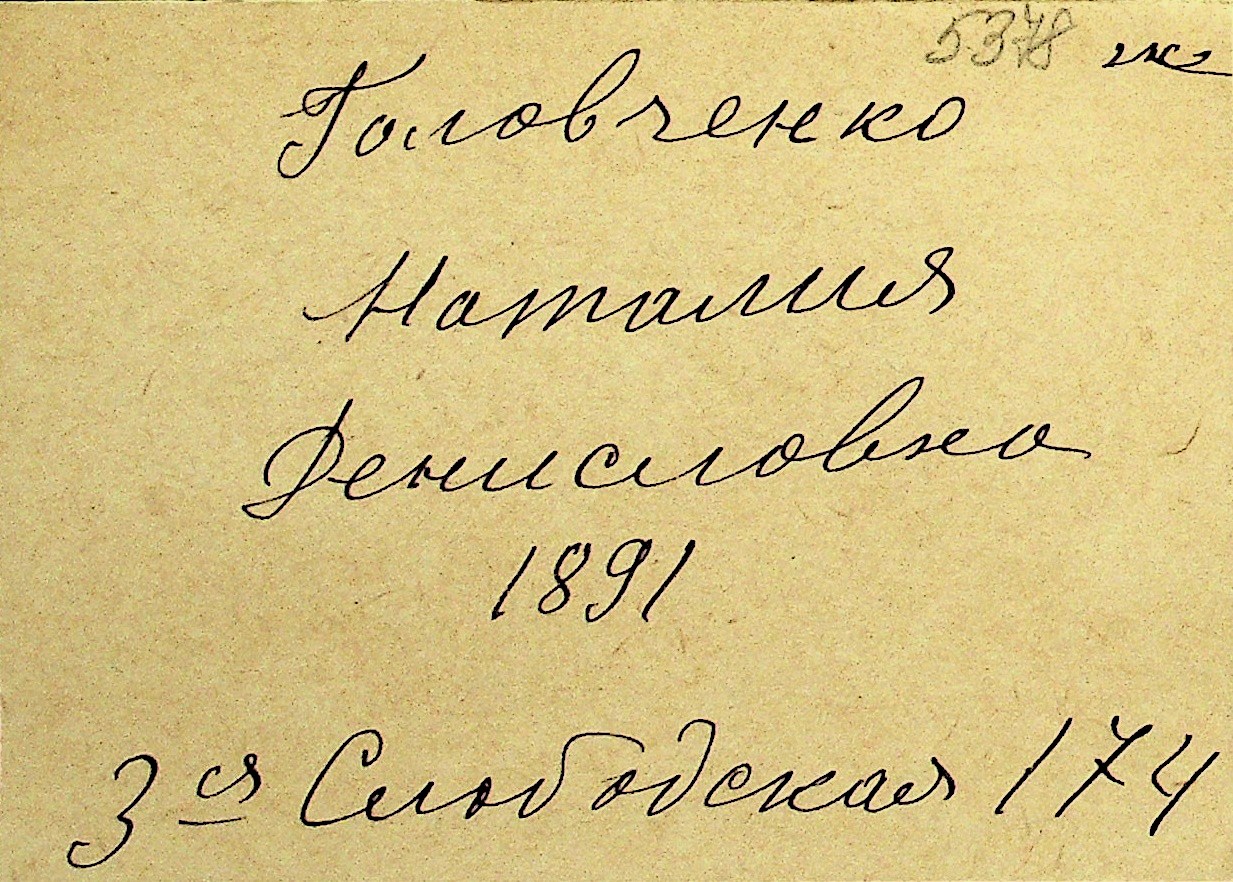 5378 ж
Головченко
Наталия
Денисловна
1891
3 ся Слободская 174